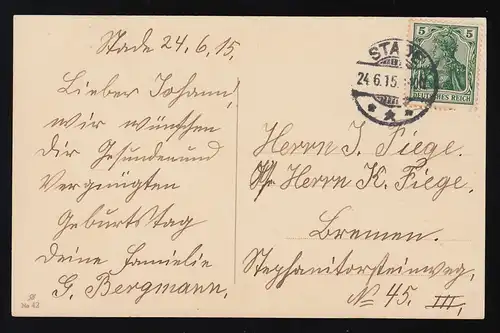 Stade 24.6.15.
Lieber Johann,
wir wünschen
Dir Gesunden und
Vergnügten
Geburtstag
Deine Familie
G. Bergmann.
Herrn J. Fiege.
Herrn K. Fiege.
Bremen.
Stephanitorsteinweg,
No 45. III.
STADE
24.6.15.
5 5
DEUTSCHES REICH
No 43